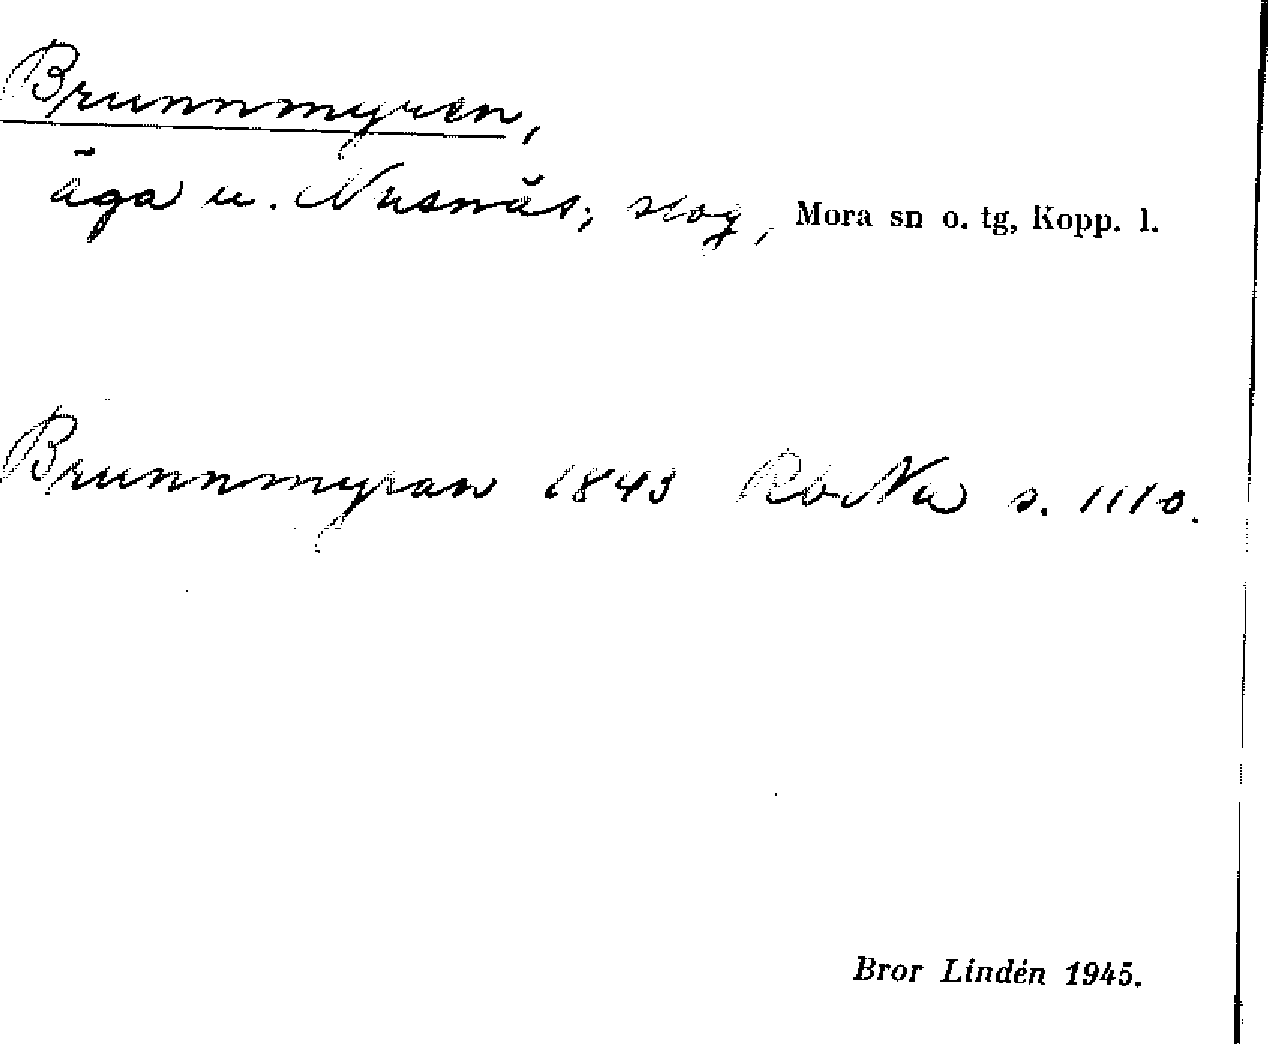 Brunnmyren,
äga u. Nusnäs; slog, Mora sn o. tg, Kopp. l.
Brunnmyran 1843 RbNu s. 1110.
Bror Lindén 1945.